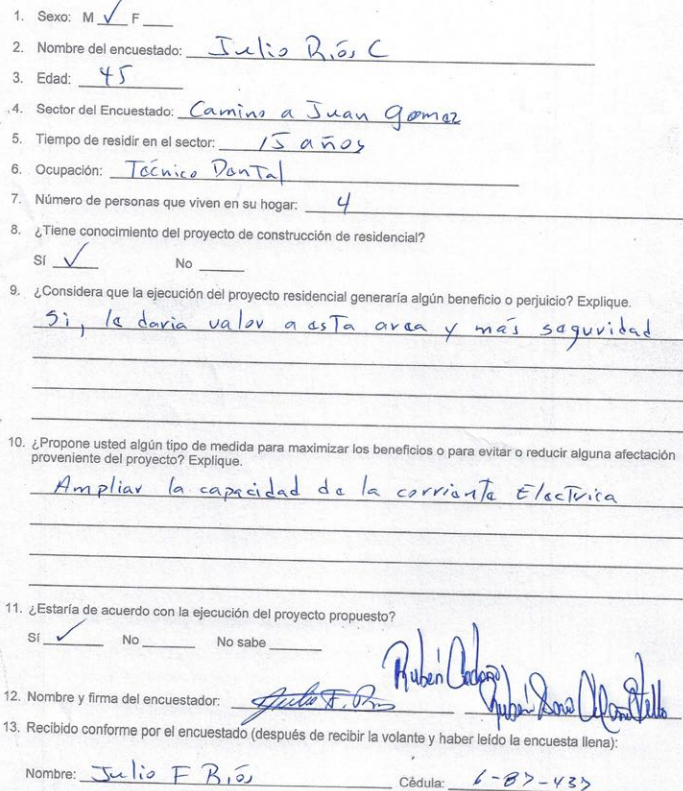 1. Sexo: M ✓ F ___
2. Nombre del encuestado: Julio Ríos C
3. Edad: 45
4. Sector del Encuestado: Camino a Juan Gomez
5. Tiempo de residir en el sector: 15 años
6. Ocupación: Técnico Dental
7. Número de personas que viven en su hogar: 4
8. ¿Tiene conocimiento del proyecto de construcción de residencial?
Sí ✓ No ___
9. ¿Considera que la ejecución del proyecto residencial generaría algún beneficio o perjuicio? Explique.
Si, le daria valor a esta area y más seguridad
10. ¿Propone usted algún tipo de medida para maximizar los beneficios o para evitar o reducir alguna afectación
proveniente del proyecto? Explique.
Ampliar la capacidad de la corriente Electrica
11. ¿Estaría de acuerdo con la ejecución del proyecto propuesto?
Sí ✓ No ___ No sabe ___
Rubén
12. Nombre y firma del encuestador: Julio F. Rubén
13. Recibido conforme por el encuestado (después de recibir la volante y haber leído la encuesta llena):
Nombre: Julio F Ríos Cédula: